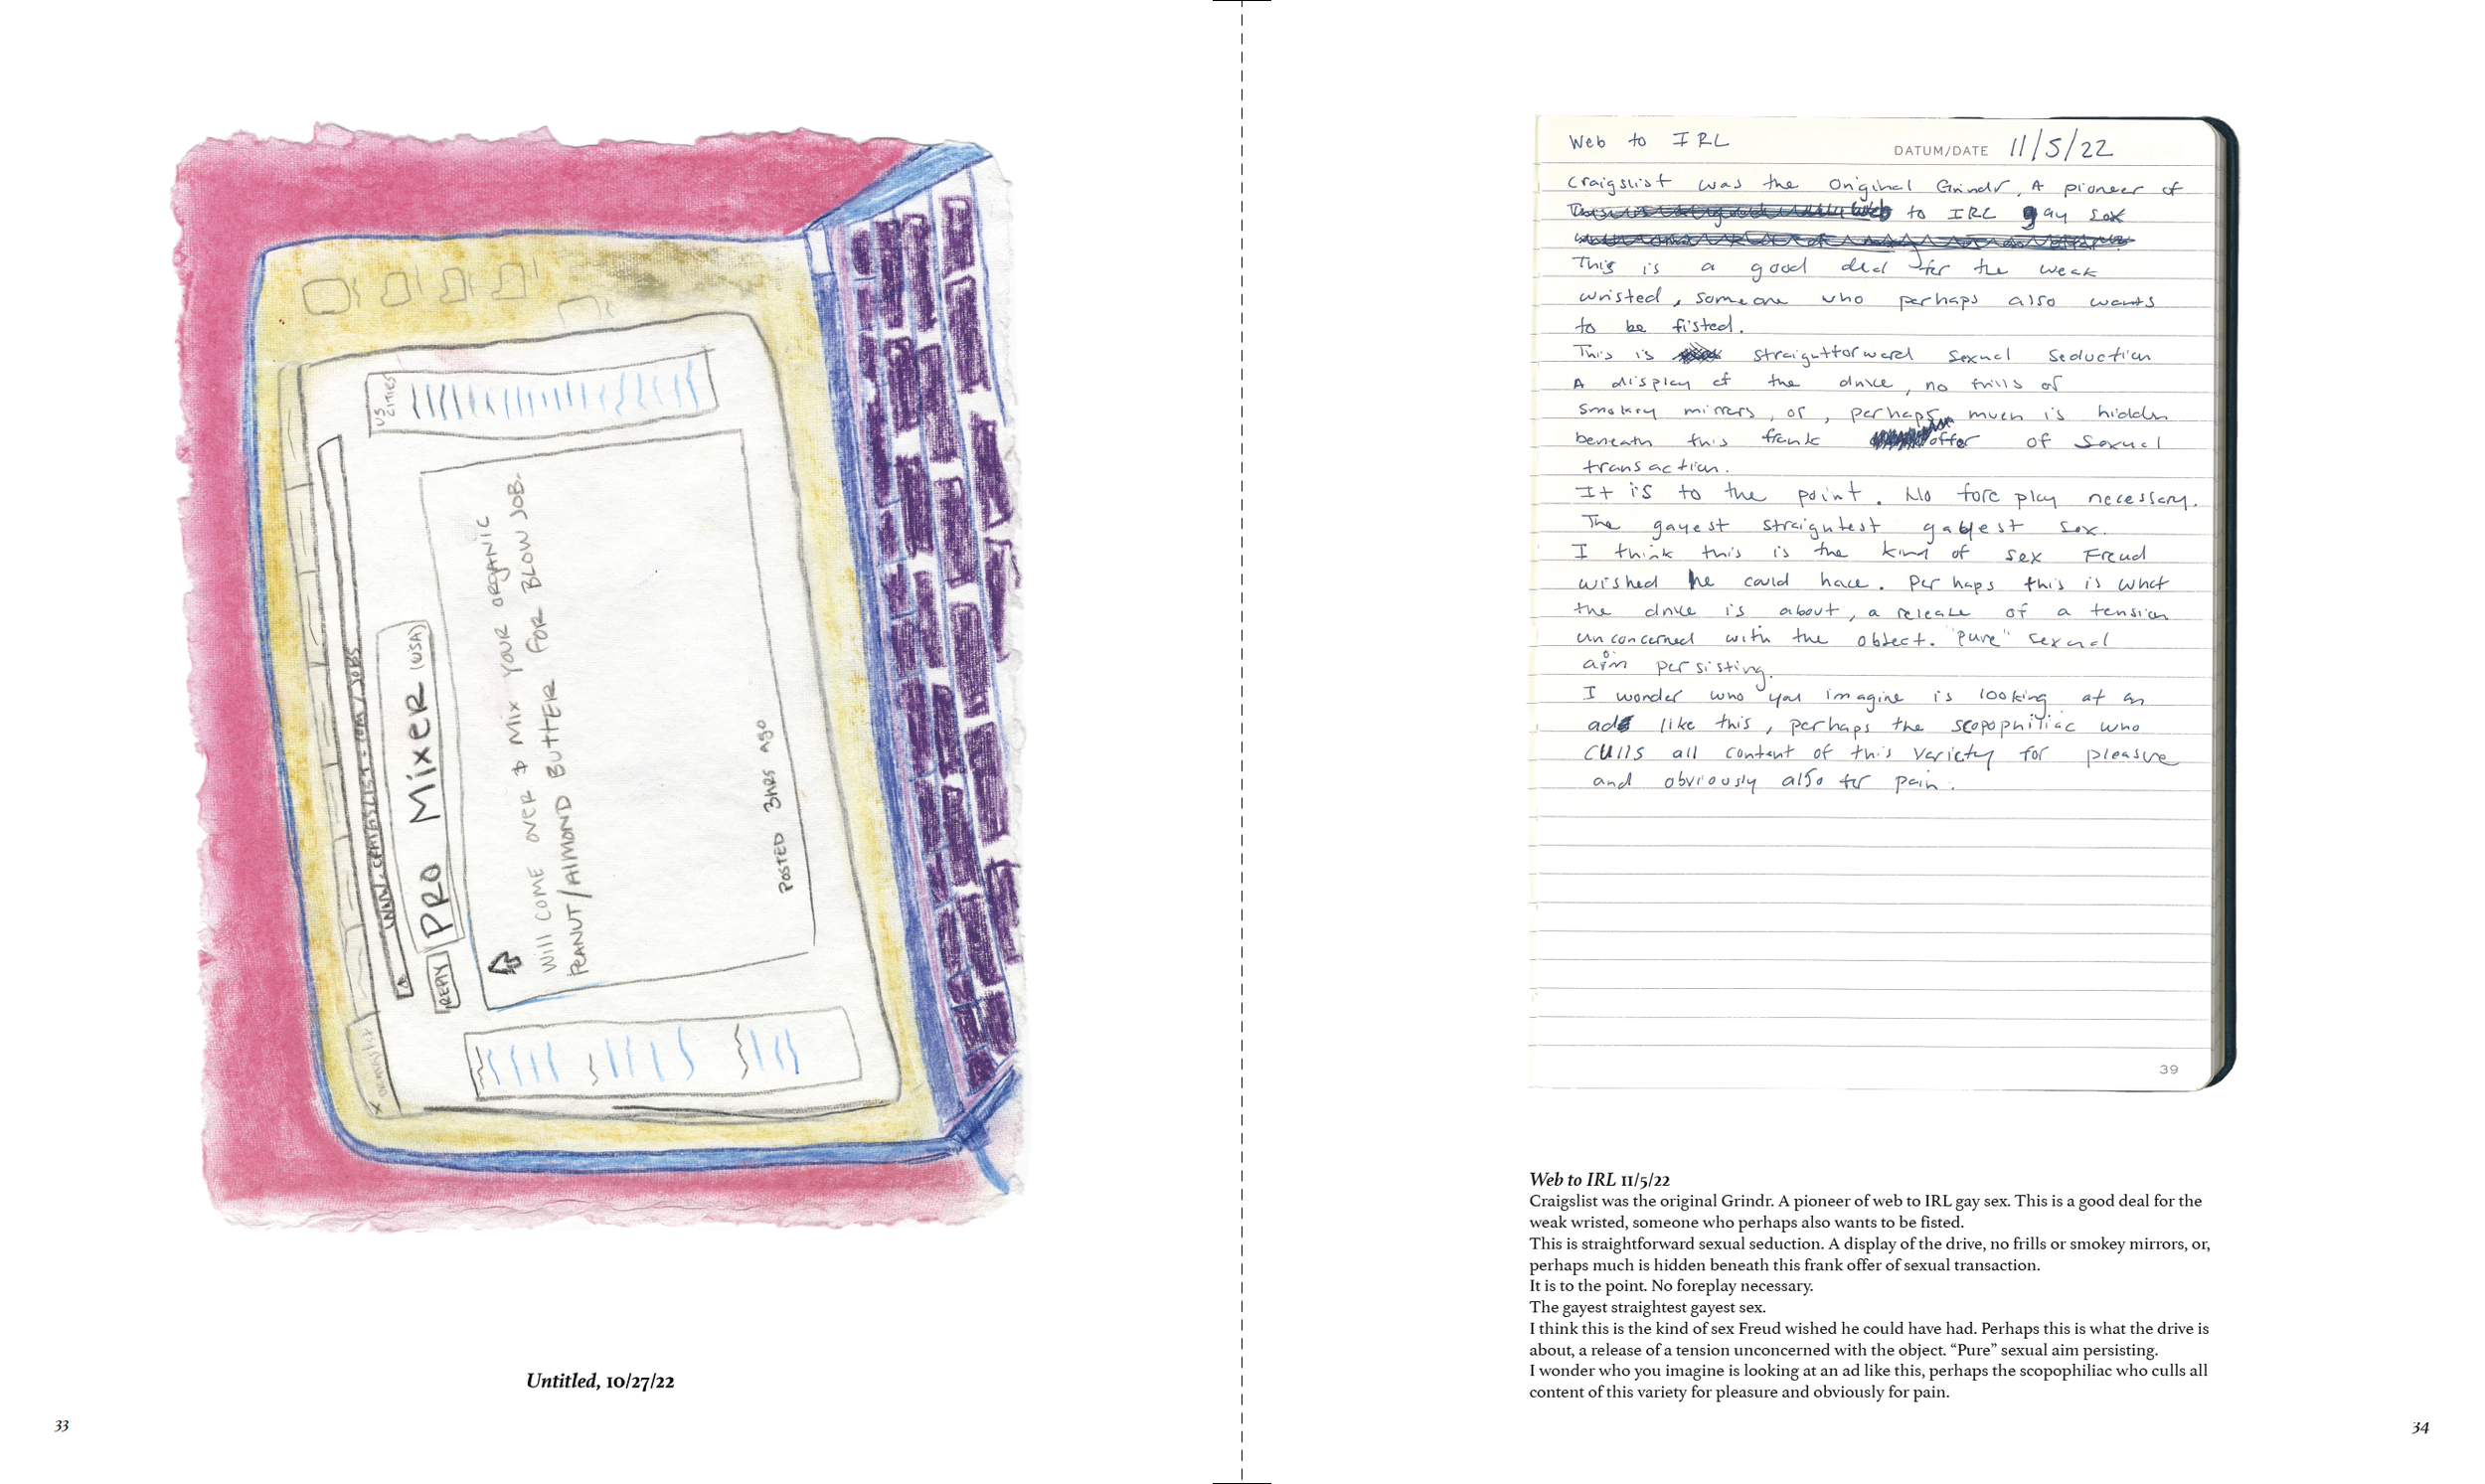 X CRAIGSLIST
WWW.CRAIGSLIST.COM/JOBS
REPLY
PRO MIXER (USA)
US CITIES
Will COME OVER & Mix YOUR ORGANIC
PEANUT/AlMOND BUTTER FOR BLOW JOB.
POSTED 3HRS AGO
Untitled, 10/27/22
33
Web to IRL DATUM/DATE 11/5/22
Craigslist was the Original Grindr. A pioneer of
Web to IRL gay sex
This is a good deal for the weak
wristed, someone who perhaps also wants
to be fisted.
This is straightforward sexual seduction
A display of the drive, no frills or
smokey mirrors, or, perhaps much is hidden
beneath this frank offer of sexual
transaction.
It is to the point. No fore play necessary.
The gayest straightest gayest sex.
I think this is the kind of sex Freud
wished he could have. Perhaps this is what
the drive is about, a release of a tension
unconcerned with the object. "pure" sexual
aim persisting.
I wonder who you imagine is looking at an
ad like this, perhaps the scopophiliac who
culls all content of this variety for pleasure
and obviously also for pain.
39
Web to IRL 11/5/22
Craigslist was the original Grindr. A pioneer of web to IRL gay sex. This is a good deal for the
weak wristed, someone who perhaps also wants to be fisted.
This is straightforward sexual seduction. A display of the drive, no frills or smokey mirrors, or,
perhaps much is hidden beneath this frank offer of sexual transaction.
It is to the point. No foreplay necessary.
The gayest straightest gayest sex.
I think this is the kind of sex Freud wished he could have had. Perhaps this is what the drive is
about, a release of a tension unconcerned with the object. “Pure” sexual aim persisting.
I wonder who you imagine is looking at an ad like this, perhaps the scopophiliac who culls all
content of this variety for pleasure and obviously for pain.
34